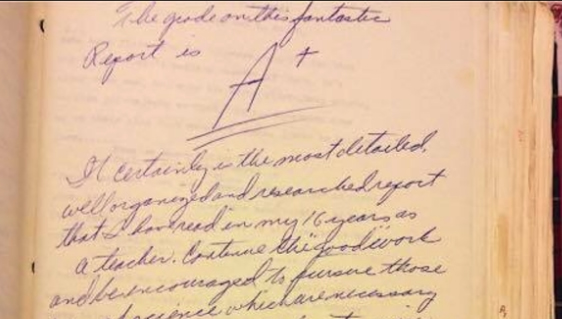 The grade on this fantastic
Report is
A+
It certainly is the most detailed,
well organized and researched report
that I have read in my 16 years as
a teacher. Continue the "good" work
and be encouraged to pursue those
science which are necessary